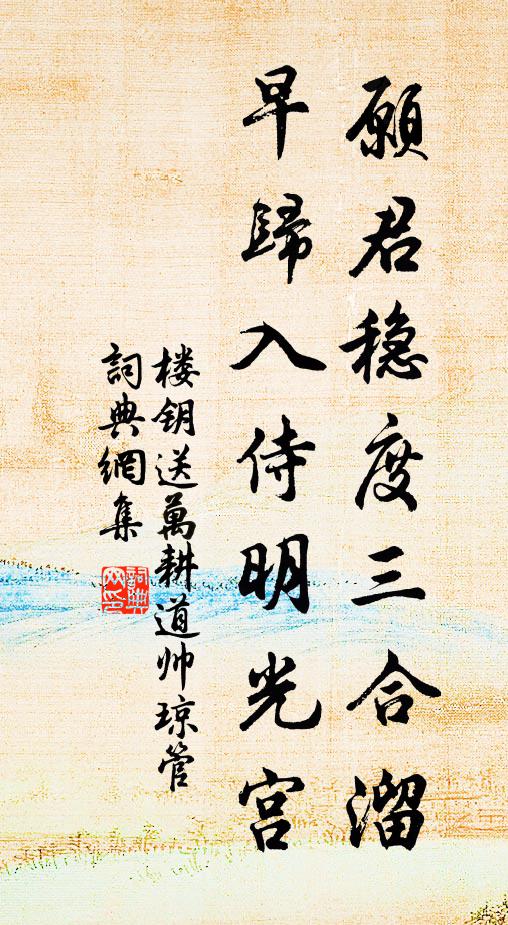 願君穩度三合溜
早歸入侍明光宮
楼钥送萬耕道帅琼管
詞典網集